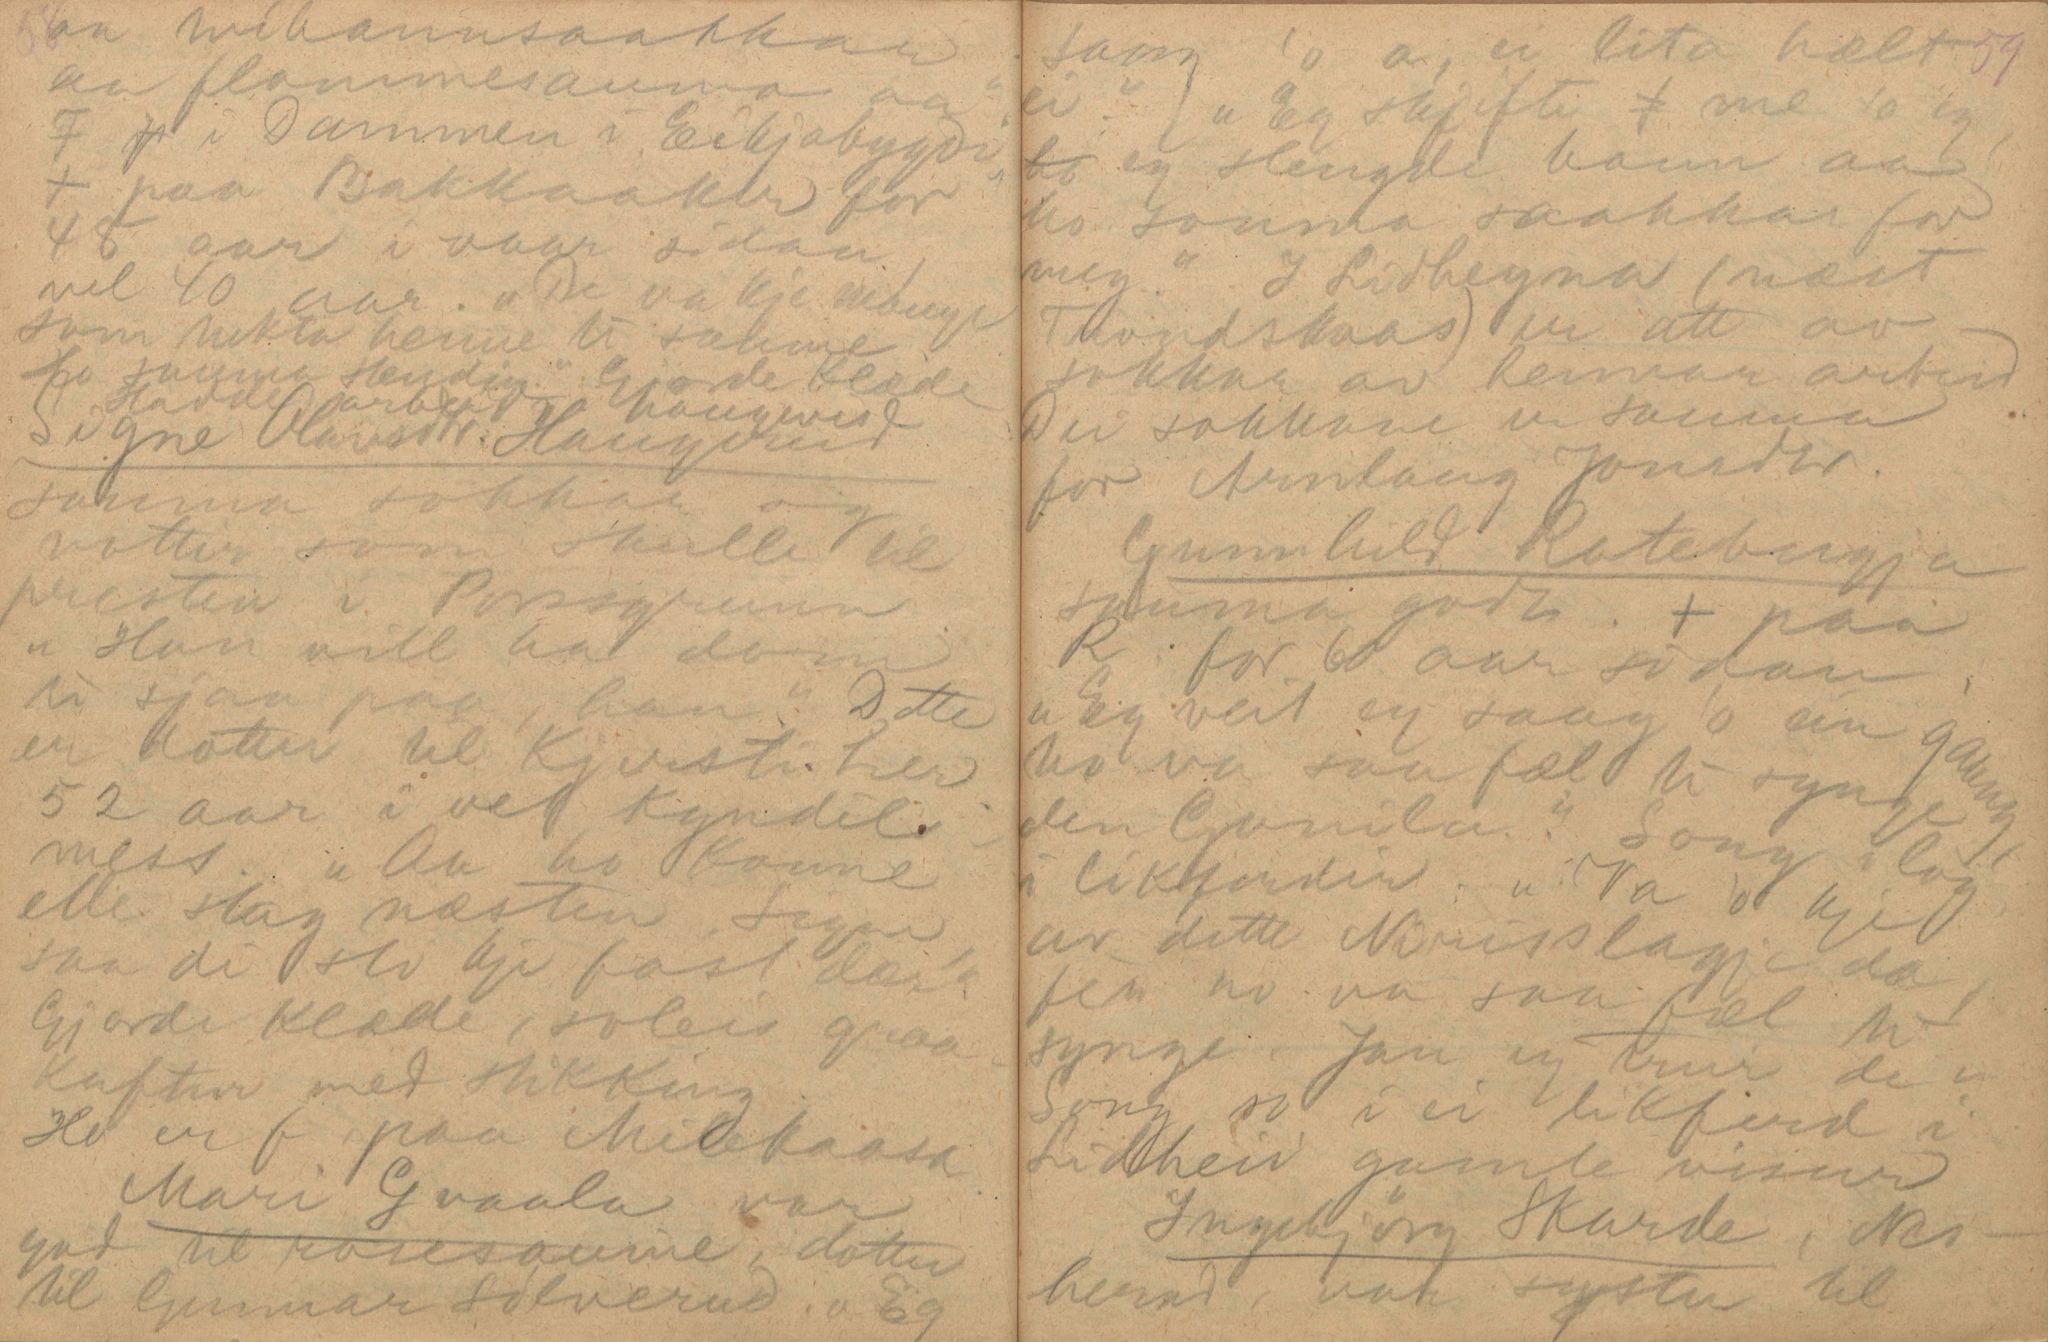 58
aa mibaannsaakkaa
aa flammesauma aa"
F i Dammen i Eikjabygdi,
+ paa Bakkaaker for
48 aar i vaar sidan,
vel 40 aar. "De va kje mange
som hekta henne ti saume
ho sauma stendig." Gjorde klæde
Hadde arbeid
Signe Olavsdtr. Haugerud
sauma sokkar og
votter som skulle til
presten i Porsgrunn
"Han vill ha dom
ti sjaa paa, han" Dette
er dotter til Kjersti her
52 aar i vet Kyndils-
mess. "Aa ho kunne
elle slag næsten, Signe
saa di sto kje fast dær"
Gjorde klæde, soleis graa-
kufter med stikking
Ho er f paa Milekaasa
Mari Gvaala var
god til rosesaume, dotter
til Gunnar Sølverud. "Eg
59
saag 'o a, ei lita hælt
ei" "Eg skjifti me 'o eg,
eg slengde baan aa
ho sauma saakkar for
meg." I Lidheigna (næst
Trondskaas) er att av
sokkar av hennar arbeid
Dei sokkane er sauma
for Arnlaug Jonsdtr.
Gunnhild Rotebergja
sauma godt. + paa
R. for 60 aar sidan.
"Eg veit eg saag 'o ein gaang,
ho va saa fæl ti synge
den Gunila." Song i lag
i likferder. "Va 'o kje
av dette Nirisslagje da,
fer ho va saa fæl ti
synge. Jau eg trur de"
Song so i ei likferd i
Lidheid gamle visur
Ingebjörg Skarde, Nes-
herad, var syster til